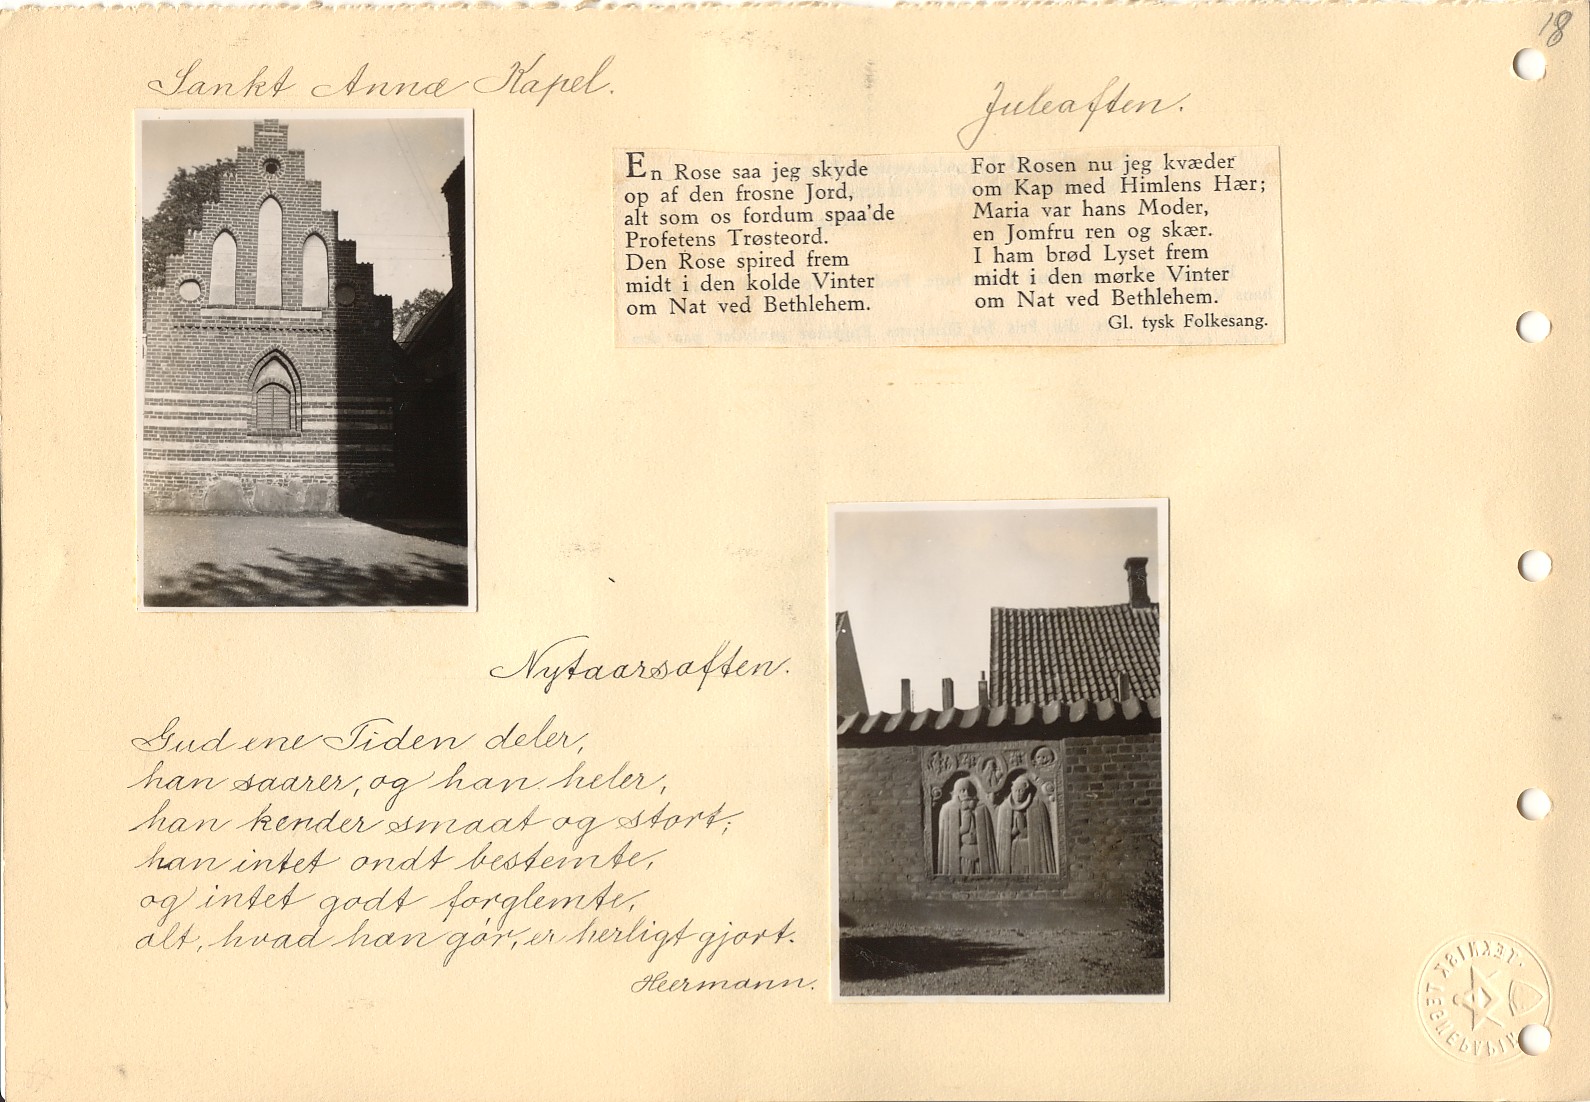 18
Sankt Annæ Kapel.
Juleaften.
En Rose saa jeg skyde
op af den frosne Jord,
alt som os fordum spaa'de
Profetens Trøsteord.
Den Rose spired frem
midt i den kolde Vinter
om Nat ved Bethlehem.
For Rosen nu jeg kvæder
om Kap med Himlens Hær;
Maria var hans Moder,
en Jomfru ren og skær.
I ham brød Lyset frem
midt i den mørke Vinter
om Nat ved Bethlehem.
Gl. tysk Folkesang.
Nytaarsaften.
Gud ene Tiden deler,
han saarer, og han heler,
han kender smaat og stort;
han intet ondt bestemte,
og intet godt forglemte,
alt, hvad han gør, er herligt gjort.
Heermann.